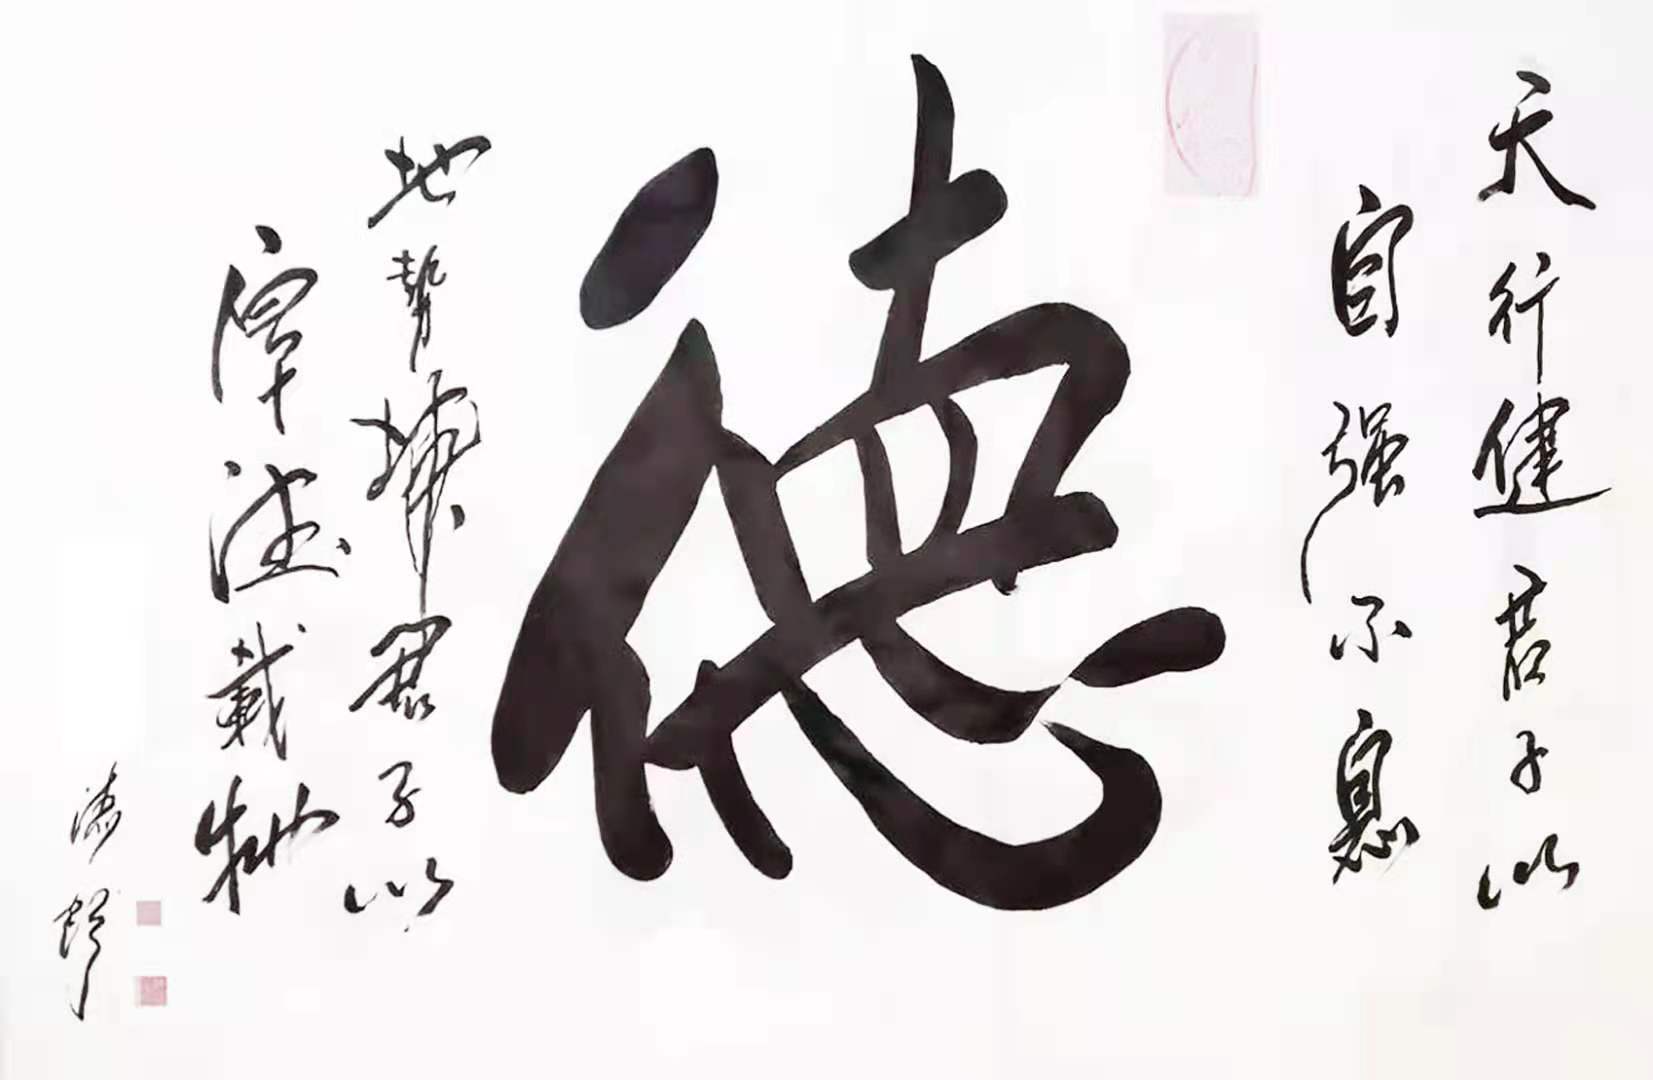 天行健君子以
自强不息
德
地势坤君子以
厚德載物